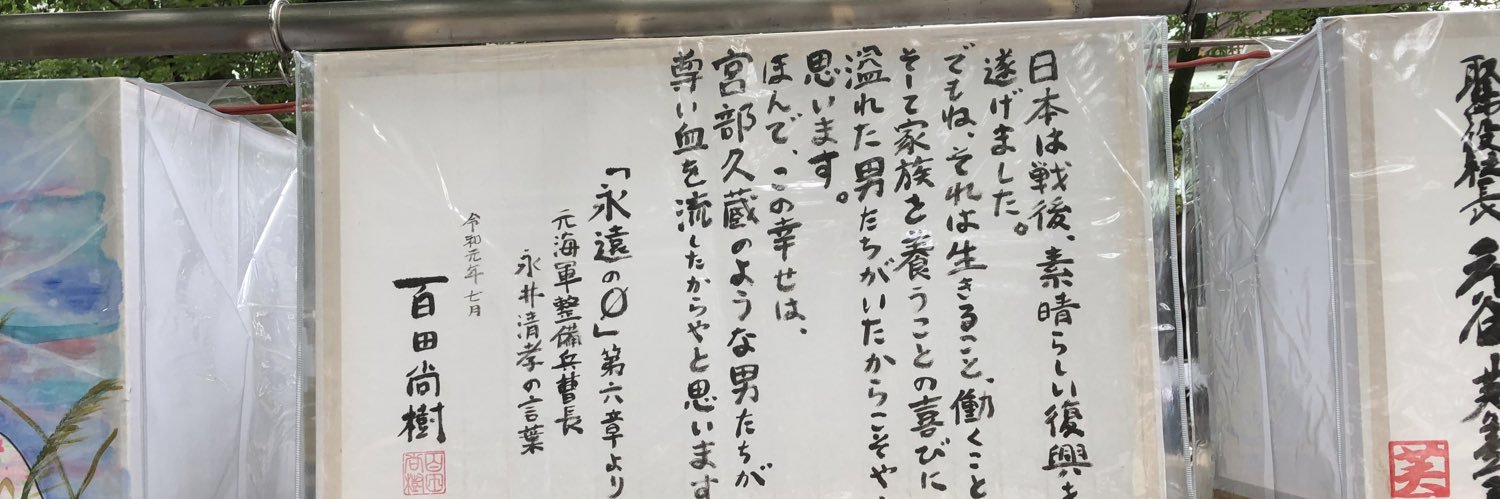 日本は戦後、素晴らしい復興を
遂げました。
でもね、それは生きること、働くこと
そして家族を養うことの喜びに
溢れた男たちがいたからこそや
思います。
ほんで、この幸せは、
宮部久蔵のような男たちが
尊い血を流したからやと思います
「永遠の0」第六章より
元海軍整備兵曹長
永井清孝の言葉
令和元年七月
百田尚樹
百田尚樹